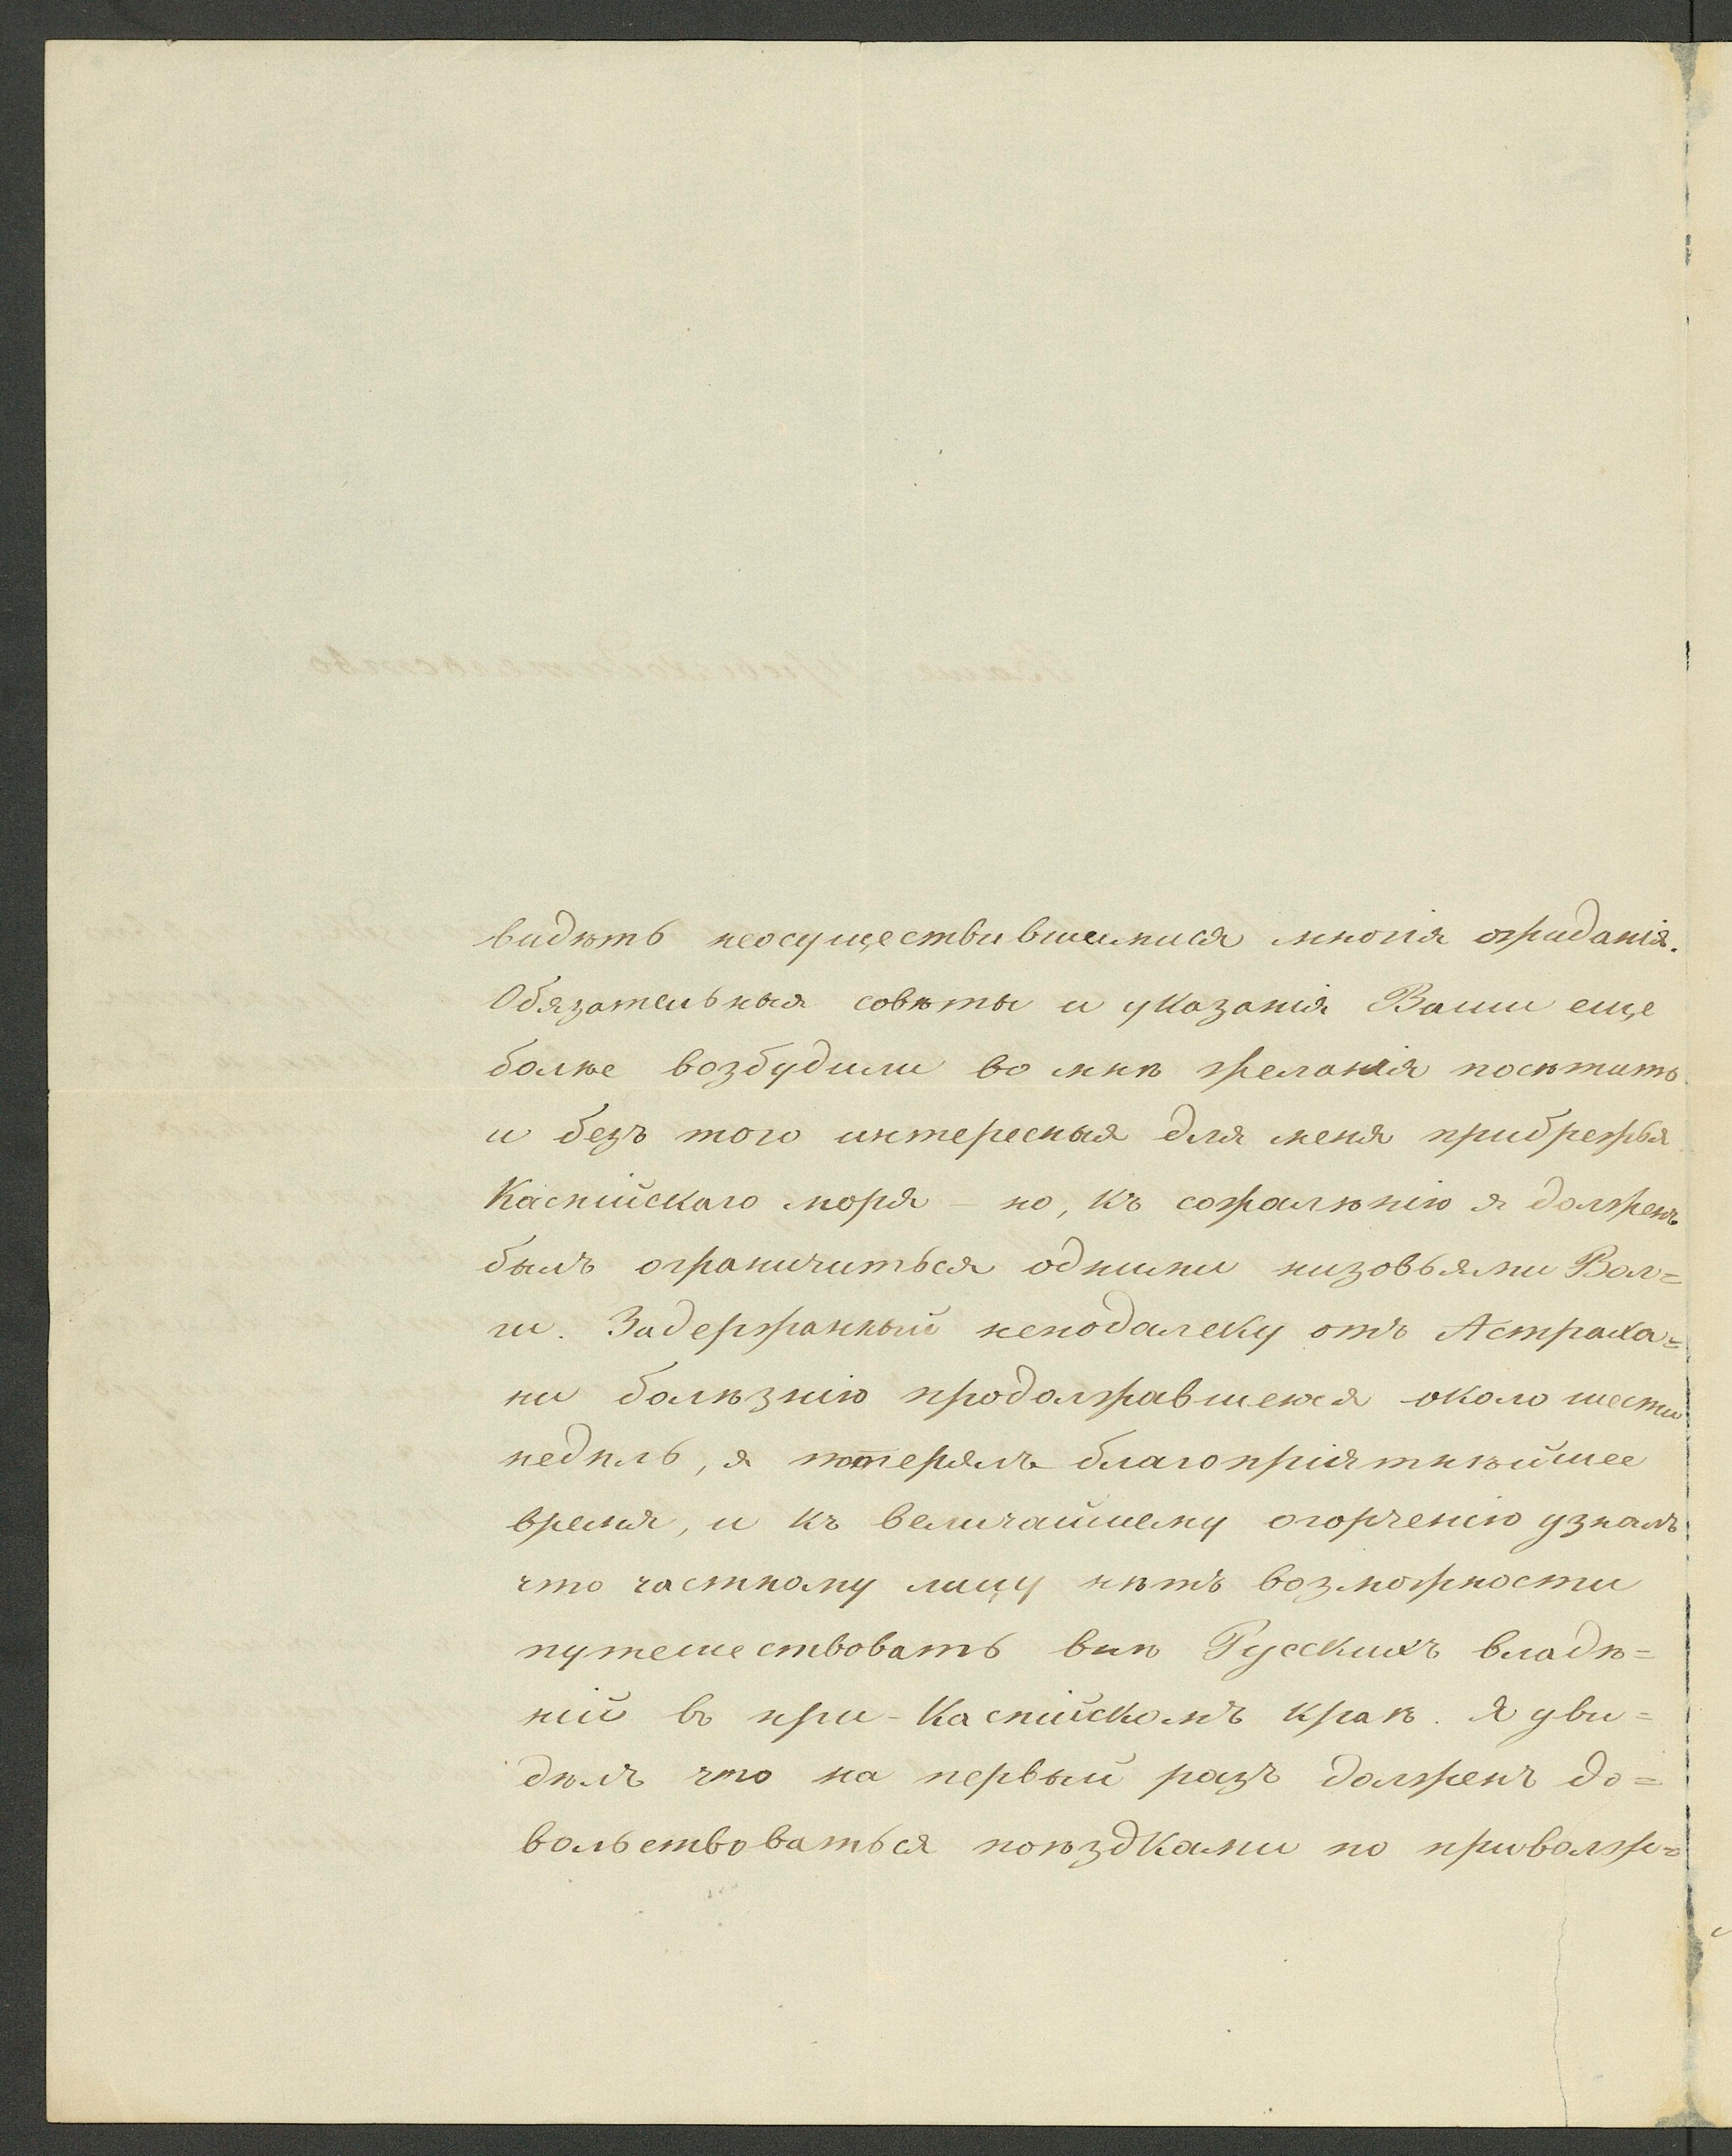 видѣть неосуществившимися многія ожиданія.
Обязательныя совѣты и указанія Ваши еще
болѣе возбудили во мнѣ желанія посѣтить
и безъ того интересныя для меня прибрежья
Каспійскаго моря – но, къ сожалѣнію я долженъ
былъ ограничиться одними низовьями Вол=
ги. Задержанный неподалеку отъ Астраха=
ни болѣзнію продолжавшеюся около шести
недѣль, я потерялъ благопріятнѣйшее
время, и къ величайшему огорченію узналъ
что частному лицу нѣтъ возможности
путешествовать внѣ Русскихъ владѣ=
ній въ при-Каспійскомъ краѣ. Я уви=
дѣлъ что на первый разъ долженъ до=
вольствоваться поѣздками по приволж=